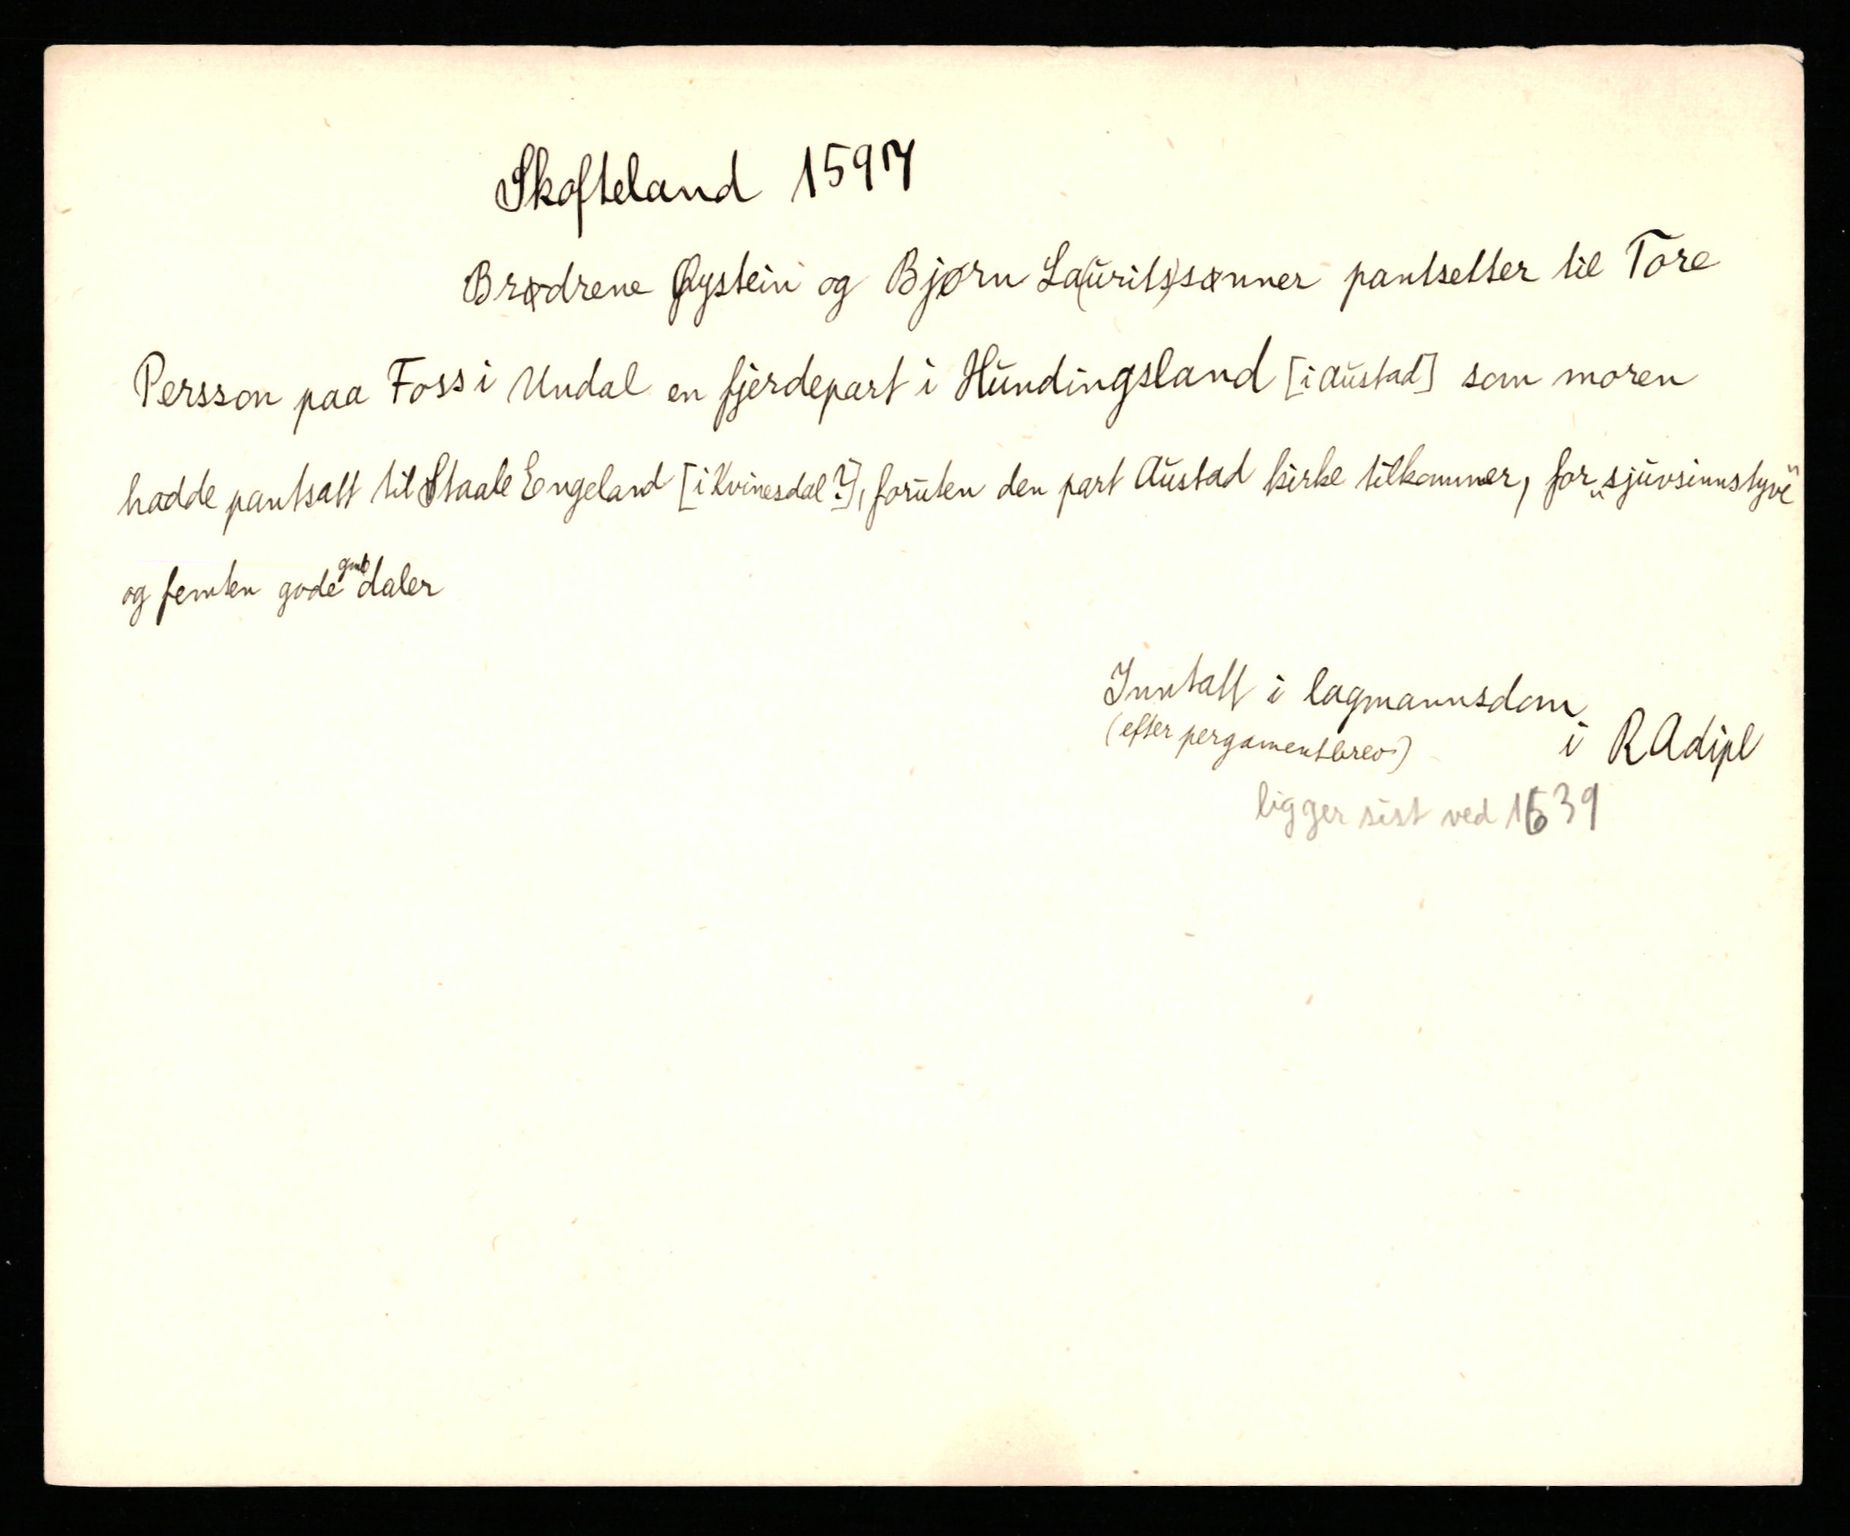 Skofteland 1597
Brødrene Øystein og Bjørn La(urits)sønner pantsetter til Tore
Persson paa Foss i Undal en fjerdepart i Hundingsland [i Austad] som moren
hadde pantsatt til Staale Engeland [i Kvinesdal?], foruten den part Austad kirke tilkommer, for "sjuvsinnstyve"
og femten gode gml daler
Inntatt i lagmannsdom
(efter pergamentbrev) i RAdipl
ligger sist ved 1639